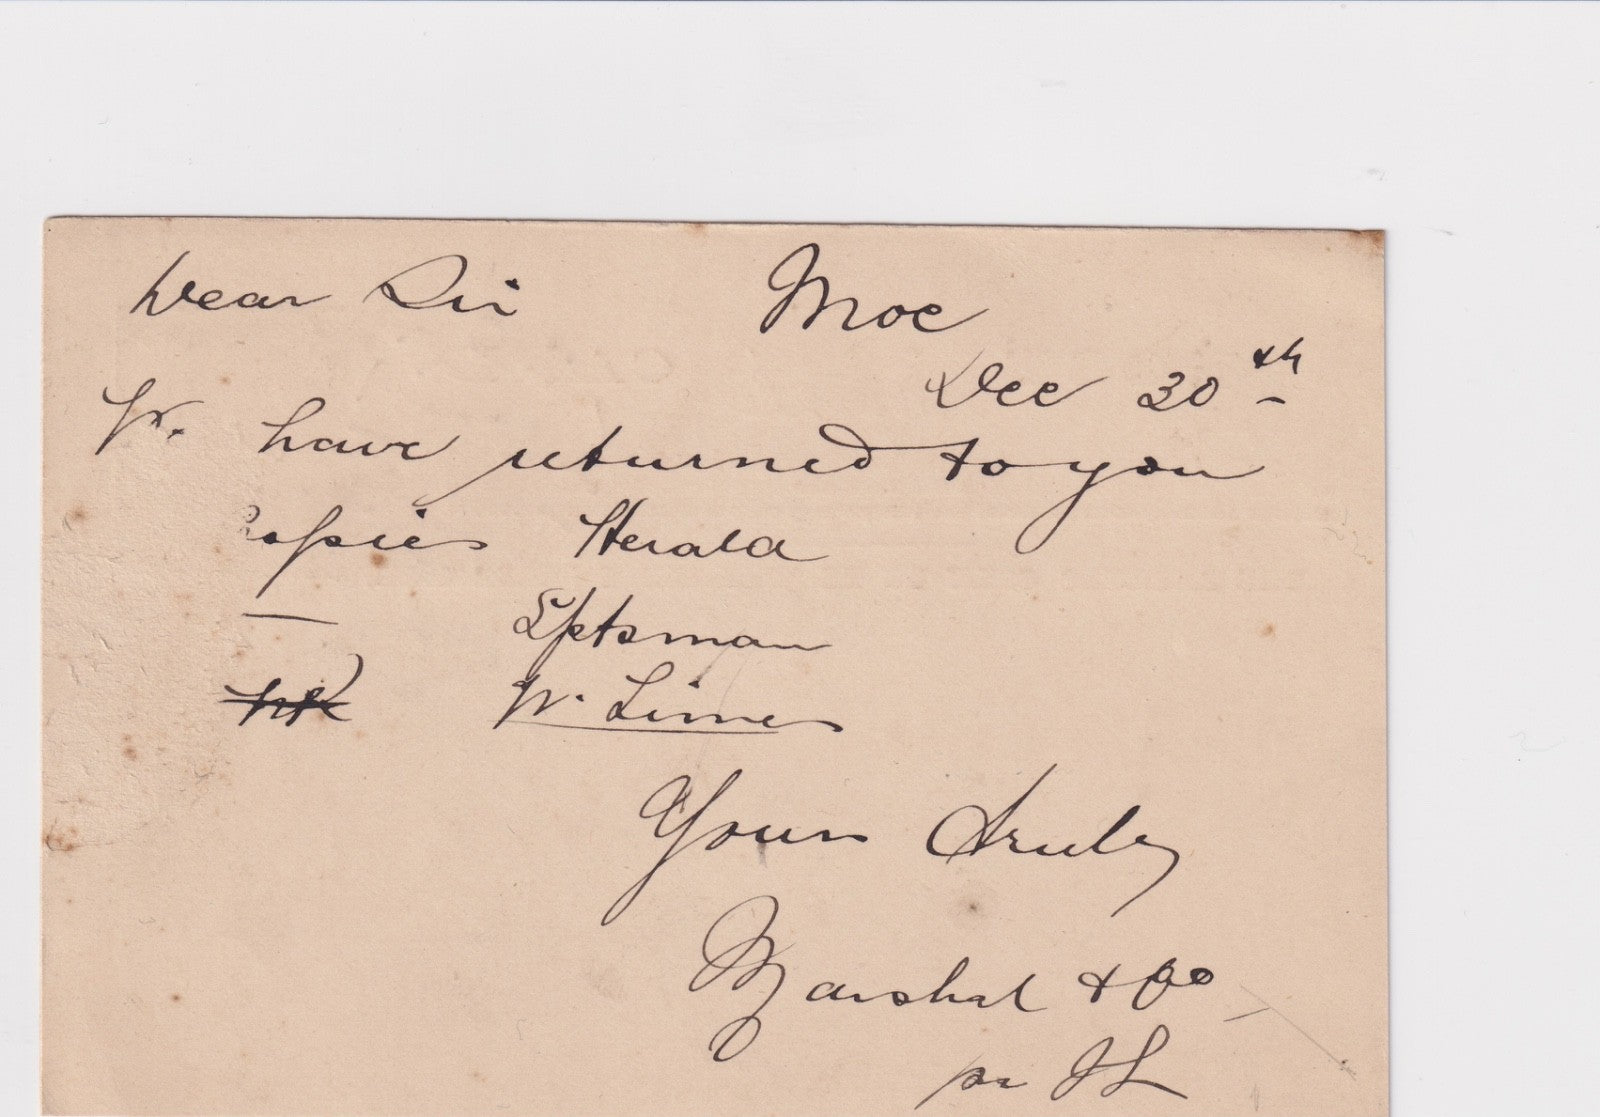 Dear Sir Moe
Dec 20th
W. have returned to you
Copies Herald
— Sptsman
W. Times
Yours truly
Marshal & Co
pr JL